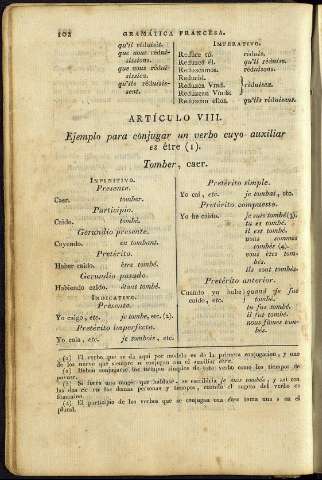 102 GRAMÁTICA FRANCESA.
qu'il réduisît.
que nous réduisissions.
que vous réduisissiez.
qu'ils réduisissent.
IMPERATIVO.
Reduce tú. réduis.
Reduzca él. qu'il réduise.
Reduzcamos. réduisons.
Reducid.
Reduzca Vmd. } réduisez.
Reduzcan Vmds.
Reduzcan ellos. qu'ils réduisent.
ARTÍCULO VIII.
Ejemplo para conjugar un verbo cuyo auxiliar
es être (1).
Tomber, caer.
INFINITIVO.
Presente.
Caer. tomber.
Participio.
Caido. tombé.
Gerundio presente.
Cayendo. en tombant.
Pretérito.
Haber caido. être tombé.
Gerundio pasado.
Habiendo caido. étant tombé.
INDICATIVO.
Presente.
Yo caigo, etc. je tombe, etc. (2).
Pretérito imperfecto.
Yo caia, etc. je tombois, etc.
Pretérito simple.
Yo caí, etc. je tombai, etc.
Pretérito compuesto.
Yo he caido. je suis tombé (3).
tu es tombé.
il est tombé.
nous sommes
tombés (4).
vous êtes tombés.
ils sont tombés.
Pretérito anterior.
Cuando yo hube caido, etc. quand je fus
tombé.
tu fus tombé.
il fut tombé.
nous fûmes tombés.
(1) El verbo que se da aquí por modelo es de la primera conjugacion, y uno
de los nueve que siempre se conjugan con el auxiliar être.
(2) Deben conjugarse los tiempos simples de este verbo como los tiempos de
(3) Si fuera una muger que hablase, se escribiria je suis tombée, y así con
las dos ee en las demas personas y tiempos, cuando el sugeto del verbo es
femenino.
(4) El participio de los verbos que se conjugan con être toma una s en el
plural.